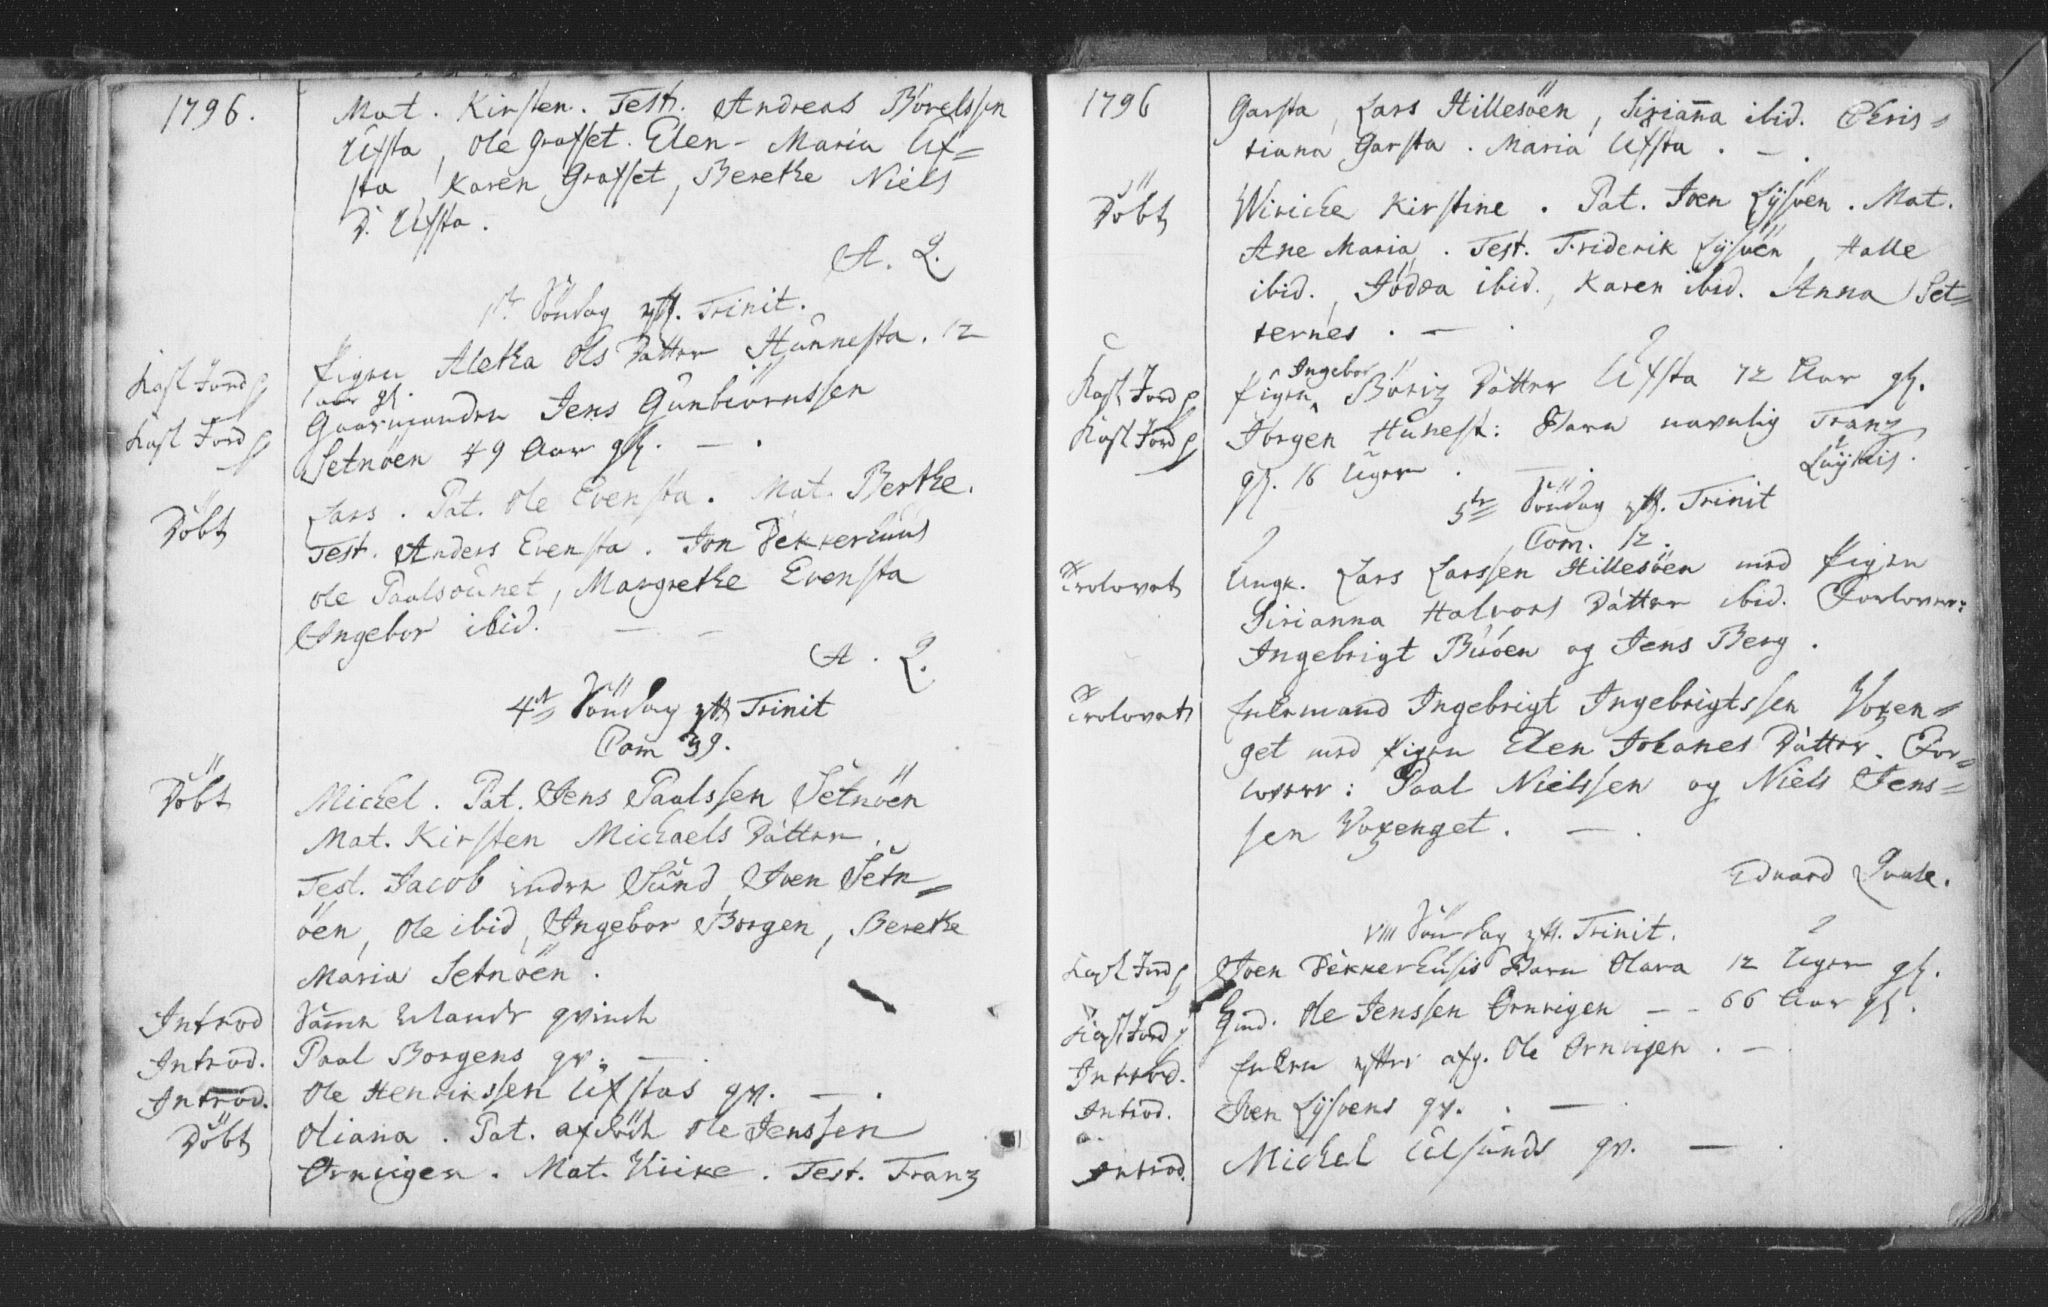 1796.
Mat. Kirsten. Test. Andreas Börelssen
Ufsta, Ole Grafset. Elen-Maria Uf=
sta, Karen Grafset, Berethe Niels
D. Ufsta.
A. Q.
1ste Söndag eft. Trinit.
Kast Jord p Pigen Aletha Ols Datter Hunnesta. 12
aar gl.
Kast Jord p Gaarmanden Jens Gunbiörnssen
Setnöen 49 Aar gl. — .
Döbt Lars. Pat. Ole Evensta. Mat. Berthe.
Test. Anders Evensta. Jon Dekkerhuus
Ole Paalsounet, Margrethe Evensta
Ingebor ibid. — —
A. Q.
4de Söndag eft Trinit
Com 39.
Döbt Michel. Pat. Jens Paalssen Setnöen
Mat. Kirsten Michaels Datter.
Test. Jacob indre Sund, Iven Setn=
öen, Ole ibid, Ingebor Borgen, Berethe
Maria Setnöen.
Introd qvinde
Introd. Paal Borgens qv. — .
Introd. Ole Henrikssen Ufstas qv. — .
Döbt Oliana. Pat. afdöde Ole Jenssen
Ornvigen. Mat. Test. Franz
1796
Garsta, Lars Hillesöen, Sirianna ibid. Chris=
tiana Garsta. Maria Ufsta. — .
Döbt Wiriche Kirstine. Pat. Iven Lysöen. Mat.
Ane Maria. Test. Friderik Lysöen, Halle
ibid., ibid., Karen ibid. Anna Set=
ternes. — .
Kast Jord p Pigen Ingebor Böriz Datter Ufsta 72 Aar gl.
Kast Jord p Jörgen Hunest: Barn navnlig Franz
gl. 16 Uger. —
5te Söndag eft. Trinit
Com. 12.
Trolovet Ungk. Lars Larssen Hillesöen med Pigen
Sirianna Halvors Datter ibid. Forlover:
Ingebrigt Buöen og Jens Berg.
Trolovet Enkemand Ingebrigt Ingebrigtssen Voxen=
get med Pigen Elen Johanes Datter. For=
lovere: Paal Nielssen og Niels Jens=
sen Voxenget. — .
Edvard Qvale.
VIII Söndag eft. Trinit.
Kast Jord p Iven Dekkerhusis Barn Olava 12 Uger gl.
Kast Jord p Gmd. Ole Jenssen Ornvigen — - 66 Aar gl.
Introd. Enken efter afg. Ole Ornvigen. —
Introd. Iven Lysöens qv. . —
Introd. Michel Ulsunds qv. — .